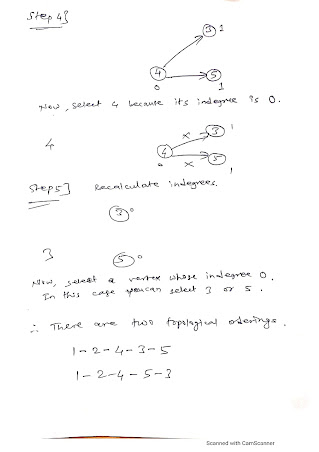 Step 4]
3 1
4
0
5
1
Now, select 4 because its indegree is 0.
4
3 1
4
0
5
1
x
x
Step 5] Recalculate indegrees.
3 0
3
5 0
Now, select a vertex whose indegree 0.
In this case you can select 3 or 5.
∴ There are two topological orderings.
1-2-4-3-5
1-2-4-5-3
Scanned with CamScanner